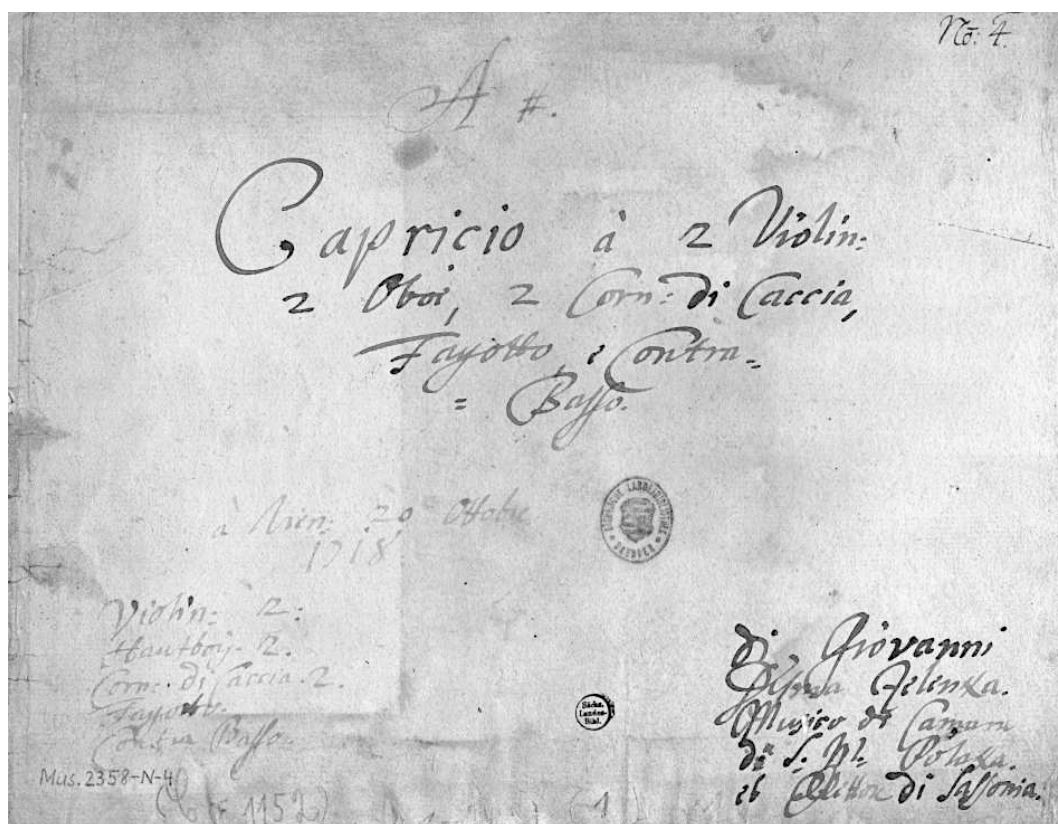 No: 4.
A #.
Capricio à 2 Violin:
2 Oboi, 2 Corn: di Caccia,
Fagotto, e Contra=
= Basso.
à Vien: 20 Ottobre
1718
Violin: 2:
Hautboy. 2.
Corne. di Caccia. 2.
Fagotto.
Contra Basso.
Sächs.
Landes-
Bibl.
di Giovanni
Disma Zelenka.
Musico di Camera
di S: M. Polacca.
et Elettore di Sassonia.
Mus. 2358-N-4
1152)